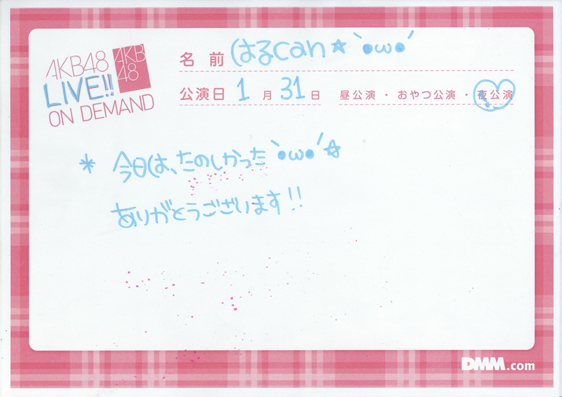 AKB48
LIVE!!
ON DEMAND
AKB
48
名前 はるcan★`•ω•´
公演日 1月31日 昼公演・おやつ公演・夜公演
* 今日は、たのしかった`•ω•´☆
ありがとうございます!!
DMM.com